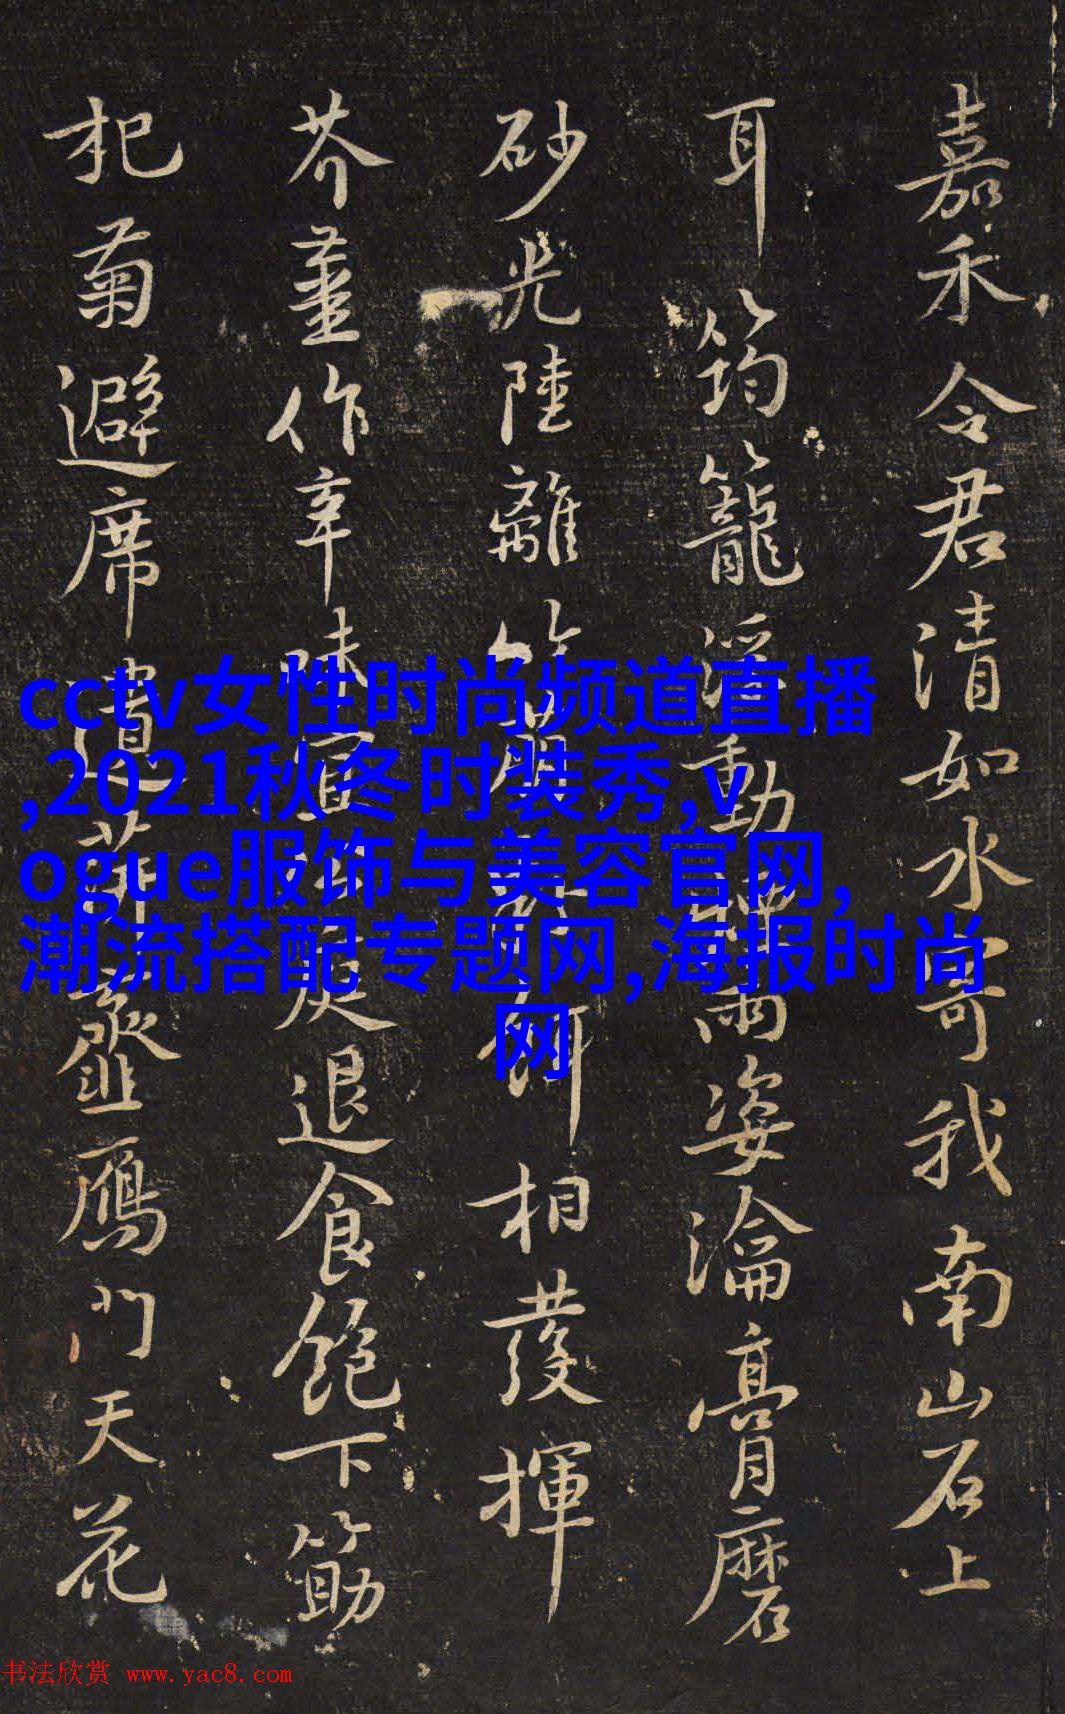 嘉禾令君清如水寄我南山石上
耳筠籠浮動雨姿瀹膏磨
砂光陸離竹萌餌相發揮
芥薑作辛味宜退食飽下筯
杞菊避席遺虀鴈門天花
cctv女性时尚频道直播
,2021秋冬时装秀,v
ogue服饰与美容官网,
潮流搭配专题网,海报时尚
网
书法欣赏 www.yac8.com